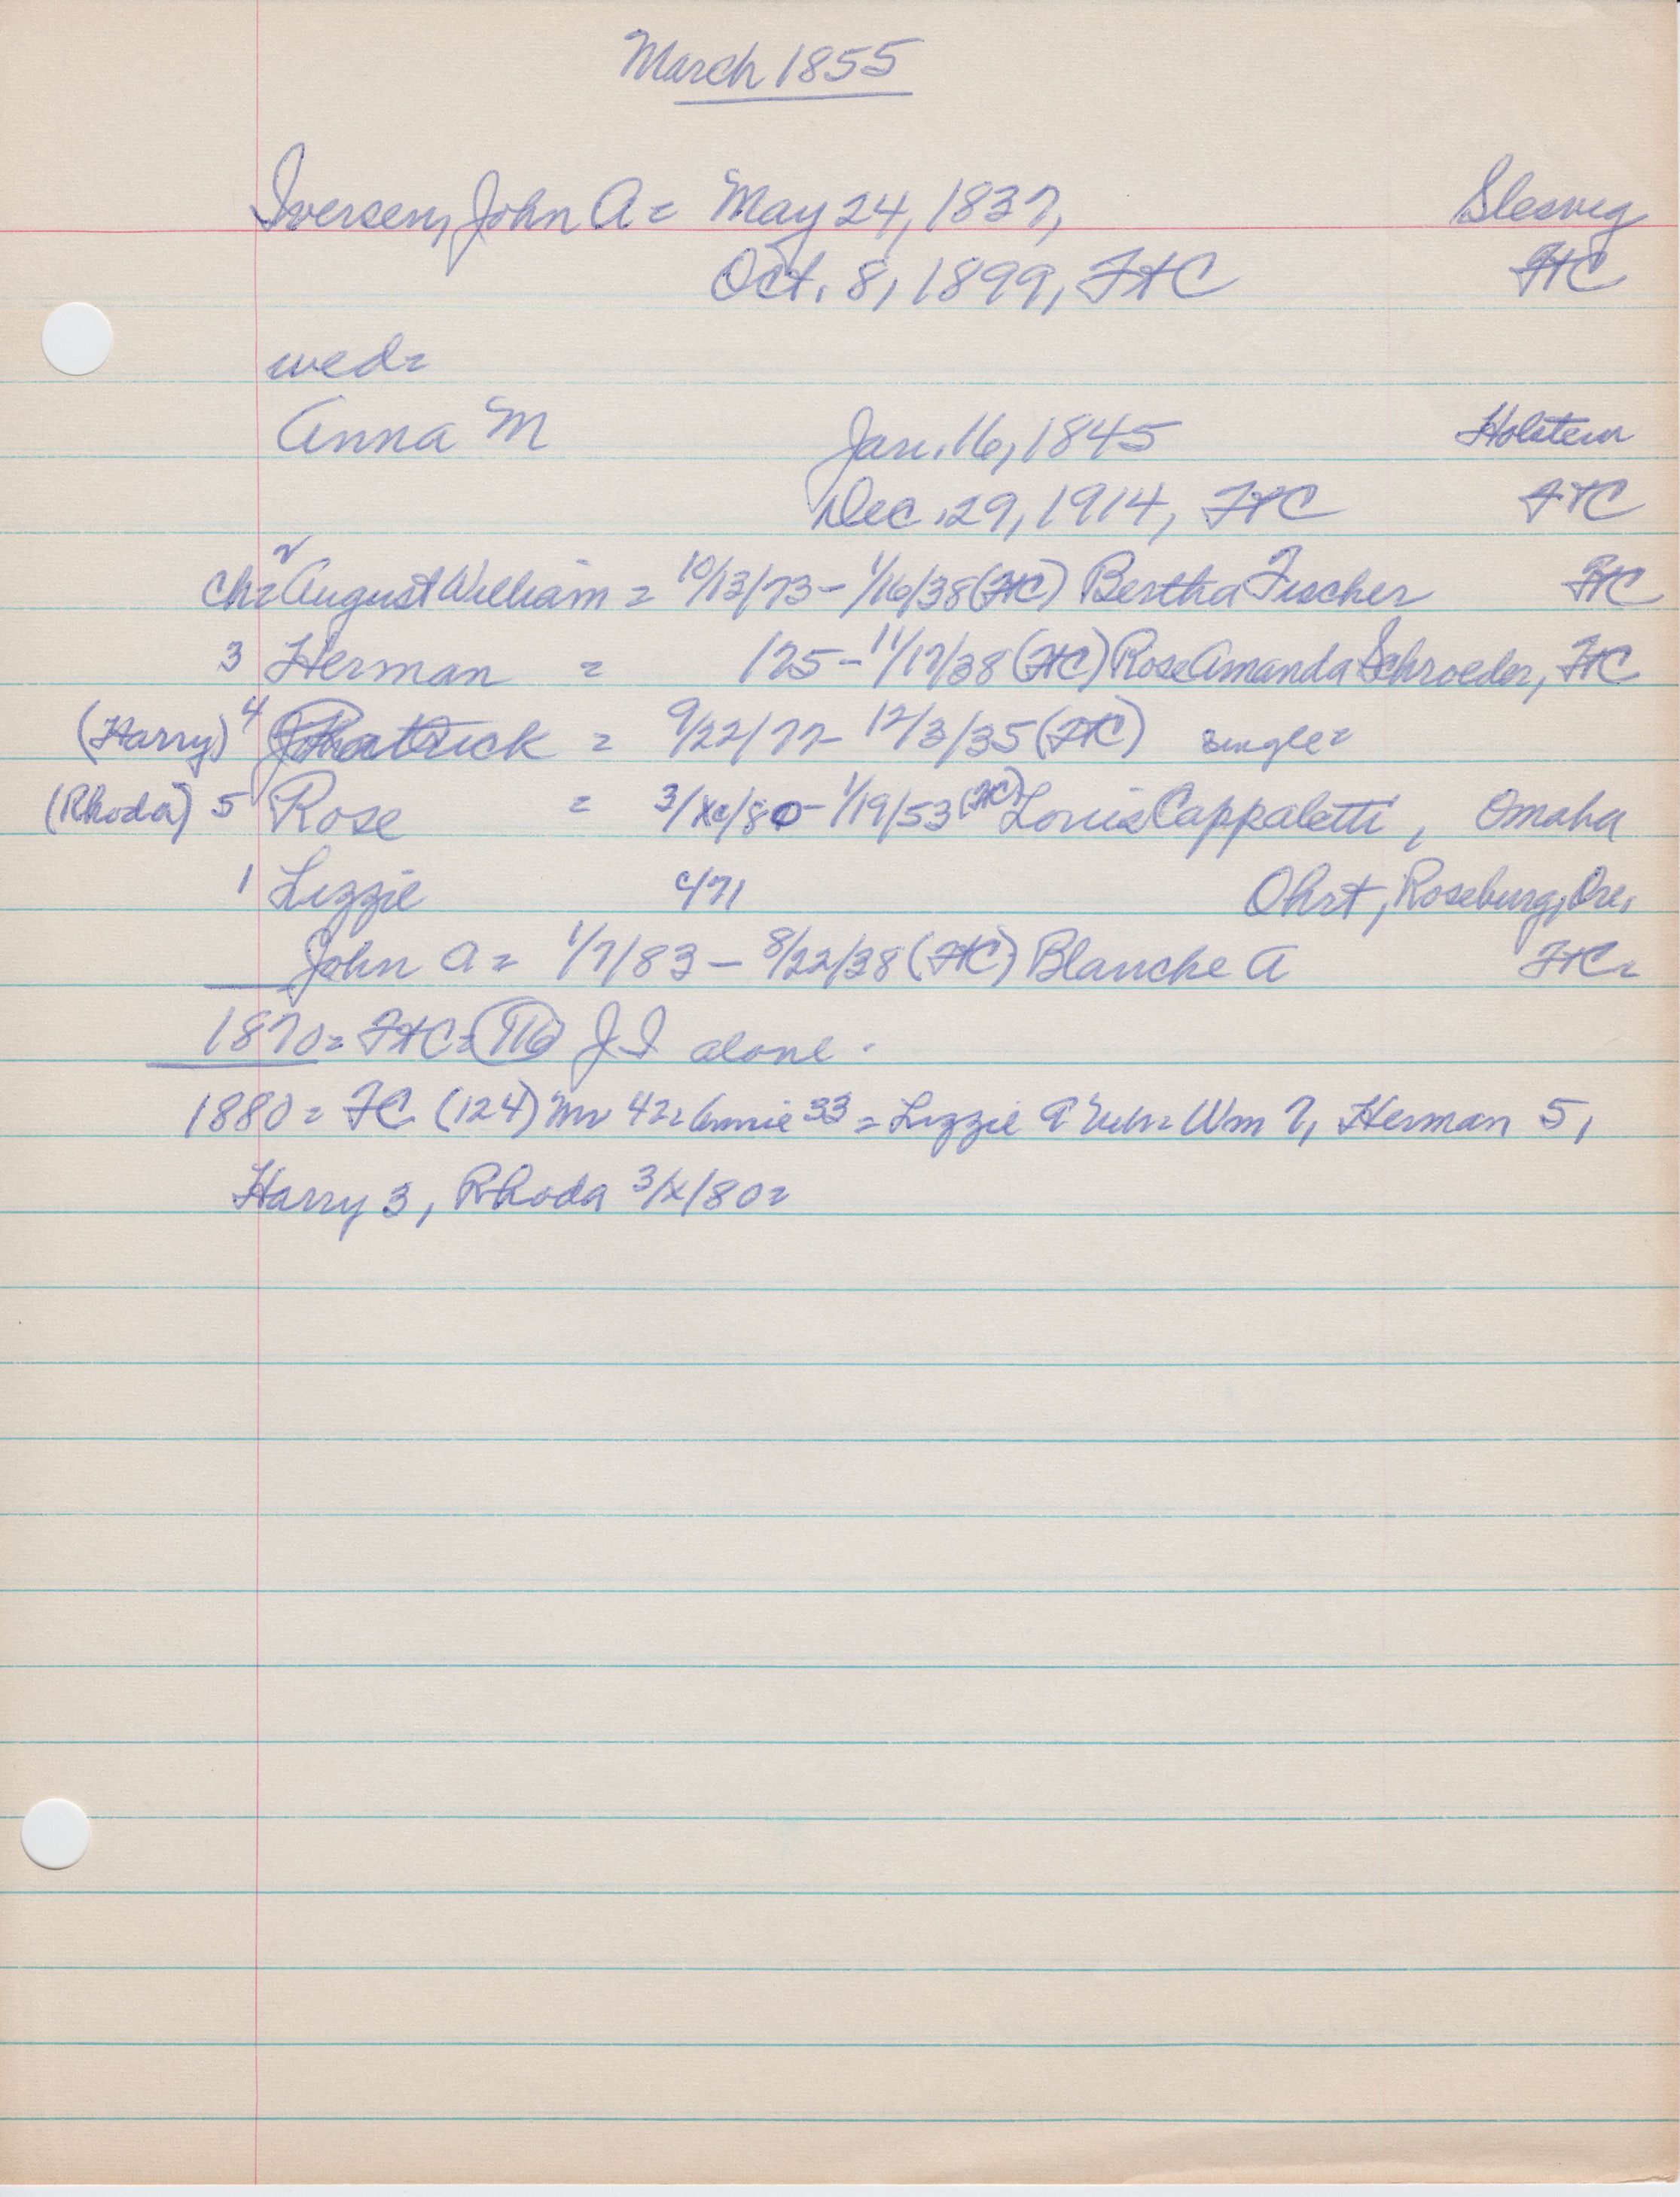 March 1855
Iversen, John A = May 24, 1837, Slesvig
Oct. 8, 1899, FtC FtC
wed=
Anna M Jan. 16, 1845 Holstein
Dec. 29, 1914, FtC FtC
ch= 2 August William = 10/13/73 - 1/16/38 (FtC) Bertha Fischer FtC
3 Herman = /75 - 11/17/38 (FtC) Rose Amanda Schroeder, FtC
(Harry) 4 = 9/22/77 - 12/3/35 (FtC) single=
(Rhoda) 5 Rose = 3/ /80 - 1/19/53 (FtC) Louis Cappaletti, Omaha
1 Lizzie c/71 Ohrt, Roseburg, Ore.
John A = 1/7/83 - 8/22/38 (FtC) Blanche A FtC=
1870= FtC= J I alone.
1880= FC (124) 42= Annie 33 = Lizzie 9 Wm 7, Herman 5,
Harry 3, Rhoda 3/x/80=